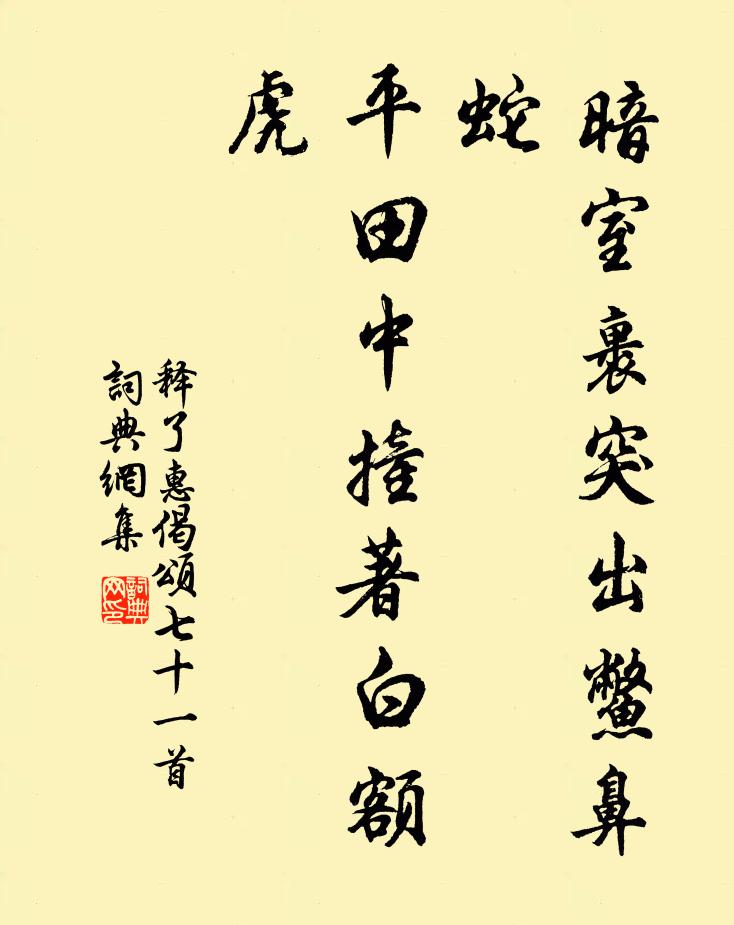 暗室裏突出鱉鼻
蛇
平田中撞著白額
虎
释了惠偈頌七十一首
詞典網集
詞典网印